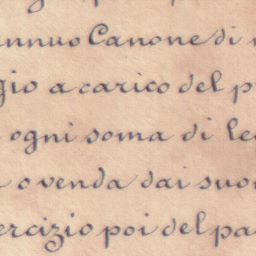 annuo Canone di
gio a carico del p
ogni soma di le
o venda dai suo
ercizio poi del pa